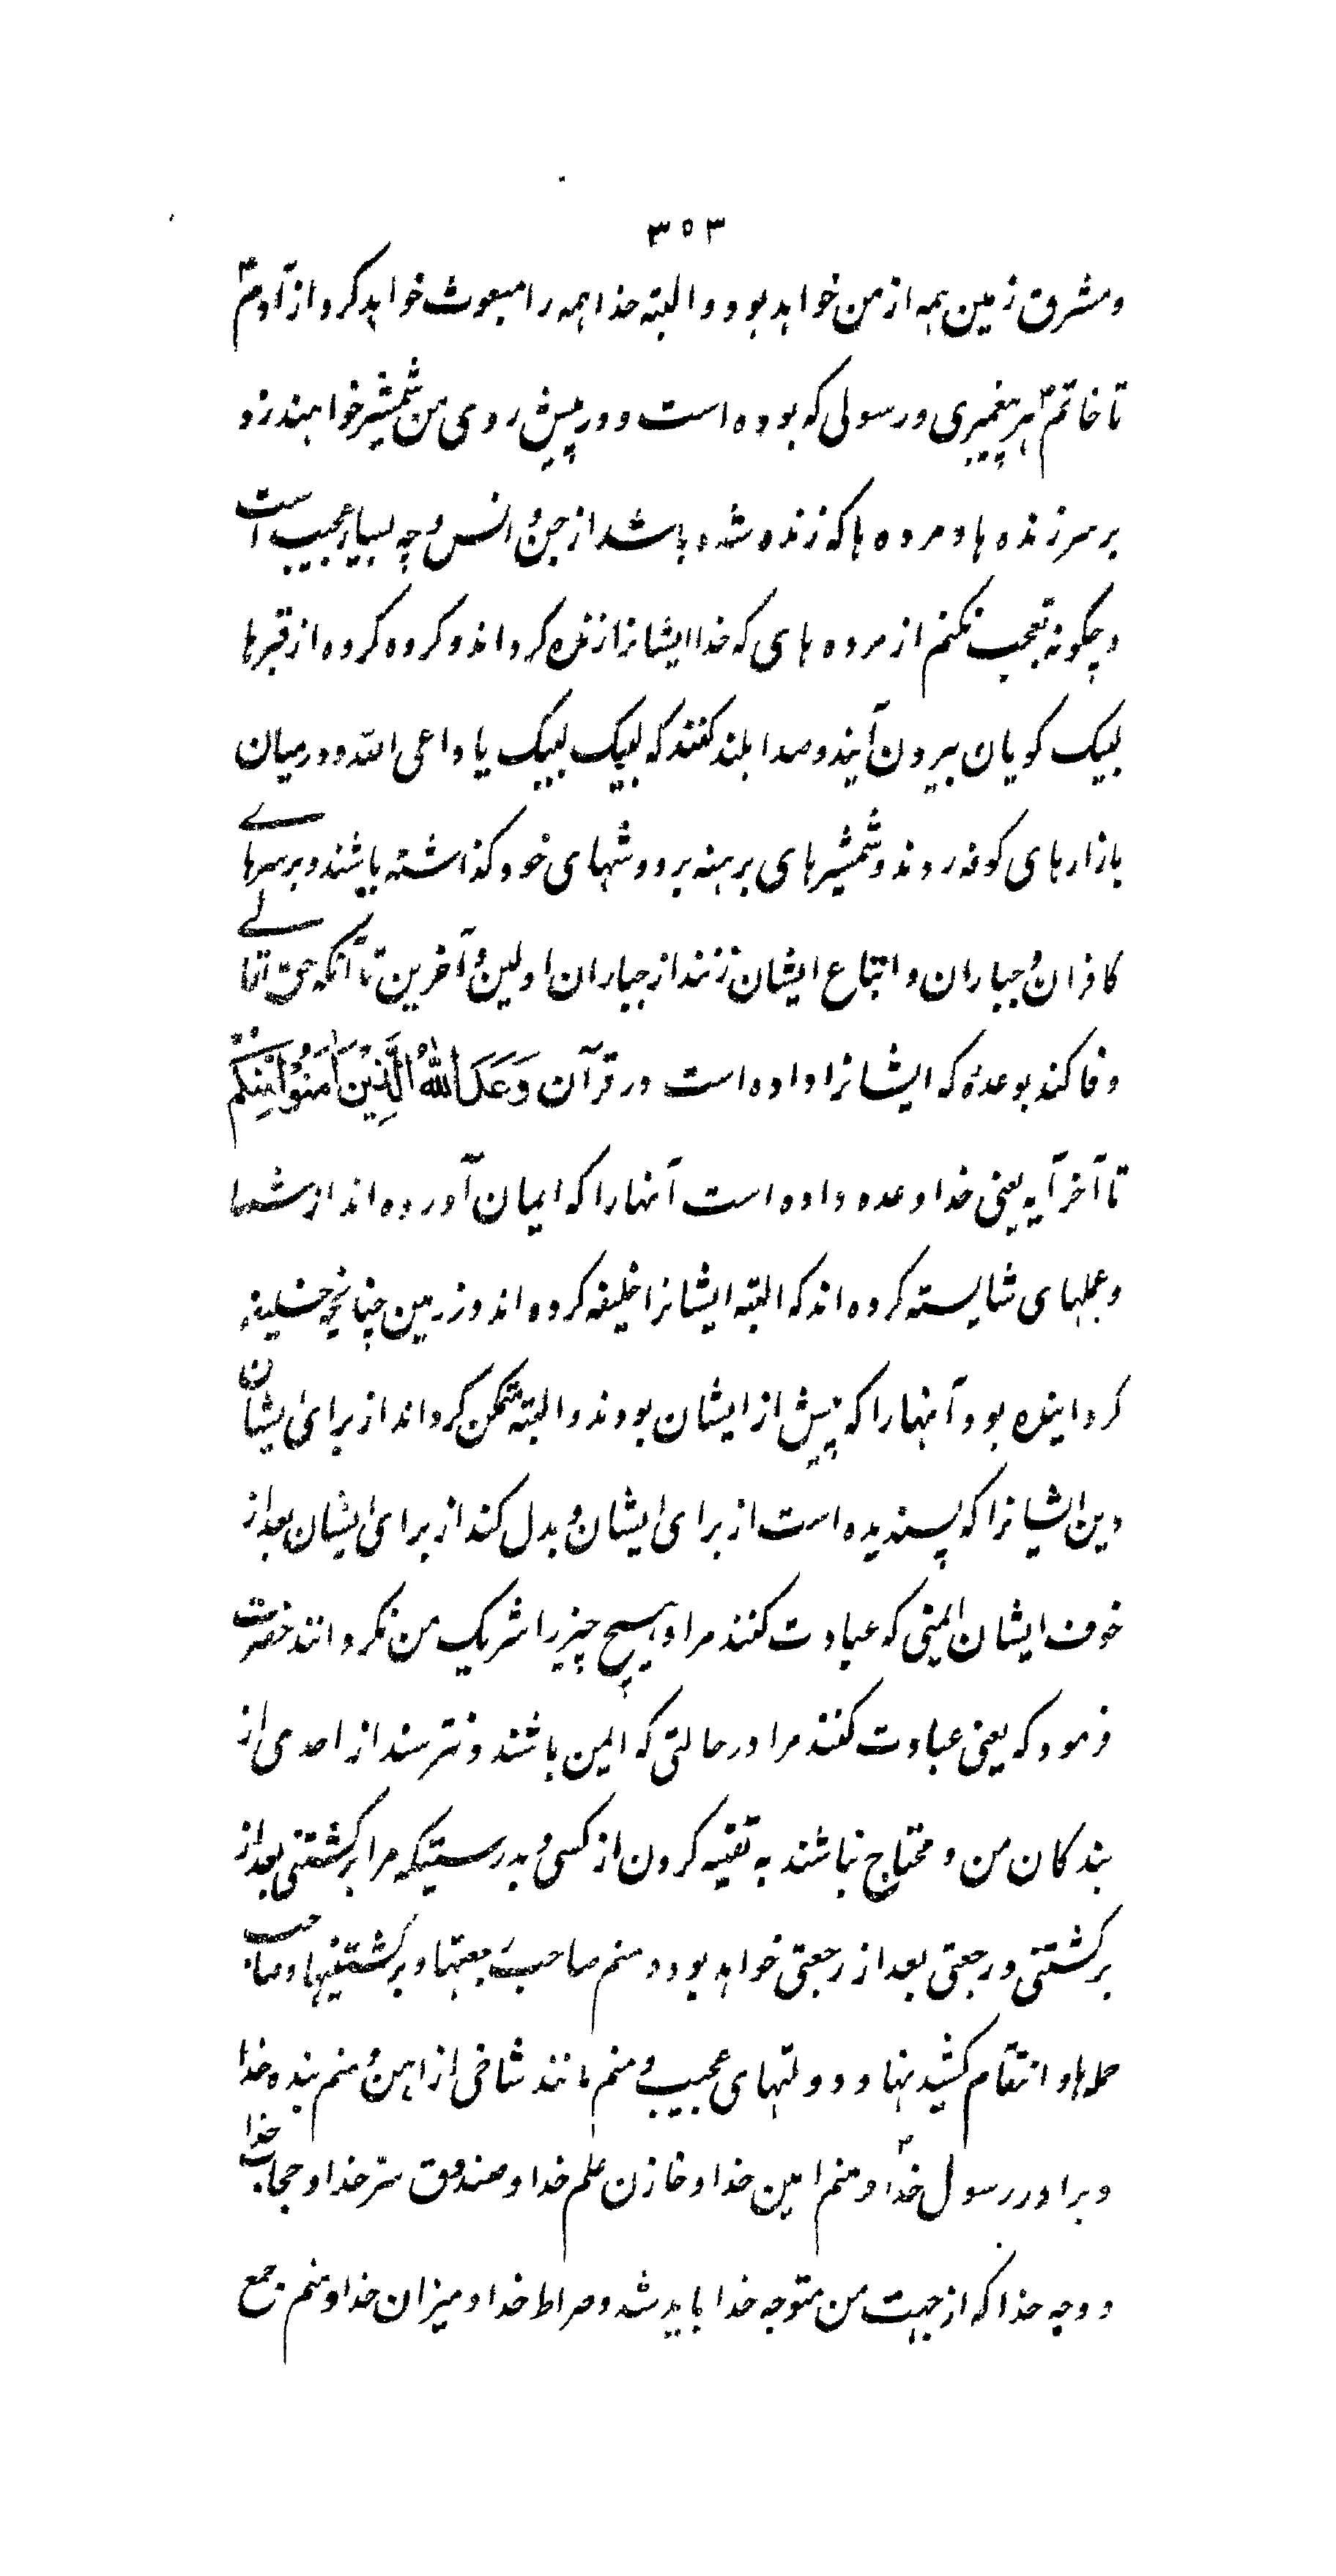 ۳۵۳
و مشرق زمین همه از من خواهد بود و البته خدا همه را مبعوث خواهد کرد از آدمؑ
تا خاتمؐ هر پیغمبری و رسولی که بوده است و در پیش روی من شمشیر خواهند زد
بر سر زنده ها و مرده ها که زنده شده باشد از جن و انس و چه بسیار عجیب است
و چکونه تعجب نکنم از مرده های که خدا ایشانرا زنده کرداند و کروه کروه از قبرها
لبیک کویان بیرون آیند و صدا بلند کنند که لبیک لبیک یا داعی الله و در میان
بازارهای کوفه روند و شمشیرهای برهنه بر دوشهای خود کذاشته باشند و بر سرهاے
کافران و جباران و اتباع ایشان زنند از جباران اولین و آخرین تا آنکه حق تعالے
وفا کند بوعدهٔ که ایشانرا داده است در قرآن وَعَدَ اللهُ الَّذِیْنَ اٰمَنُوْا مِنْکُمْ
تا آخر آیه یعنی خدا وعده داده است آنهارا که ایمان آورده اند از شما
و عملهای شایسته کرده اند که البته ایشانرا خلیفه کرده اند در زمین چنانچه خلیفه
کردانیده بود آنهارا که پیش از ایشان بودند و البته متمکن کرداند از برای ایشان
دین ایشانرا که پسندیده است از برای ایشان و بدل کند از برای ایشان بعد از
خوف ایشان ایمنی که عبادت کنند مرا و هیچ چیز را شریک من نکردانند حضرت
فرمود که یعنی عبادت کنند مرا در حالتی که ایمن باشند و نترسند از احدی از
بندکان من و محتاج نباشند به تقیه کردن از کسی و بدرستیکه مرا برکشتنی بعد از
برکشتنی و رجعتی بعد از رجعتی خواهد بود و منم صاحب رجعتها و برکشتنیها و صاحب
حمله ها و انتقام کشیدنها و دولتهای عجیب و منم مانند شاخی از آهن و منم بنده خدا
و برادر رسول خداؐ و منم امین خدا و خازن علم خدا و صندوق سرّ خدا و حجاب خدا
و وجه خدا که از جهت من متوجه خدا باید شد و صراط خدا و میزان خدا و منم جمع